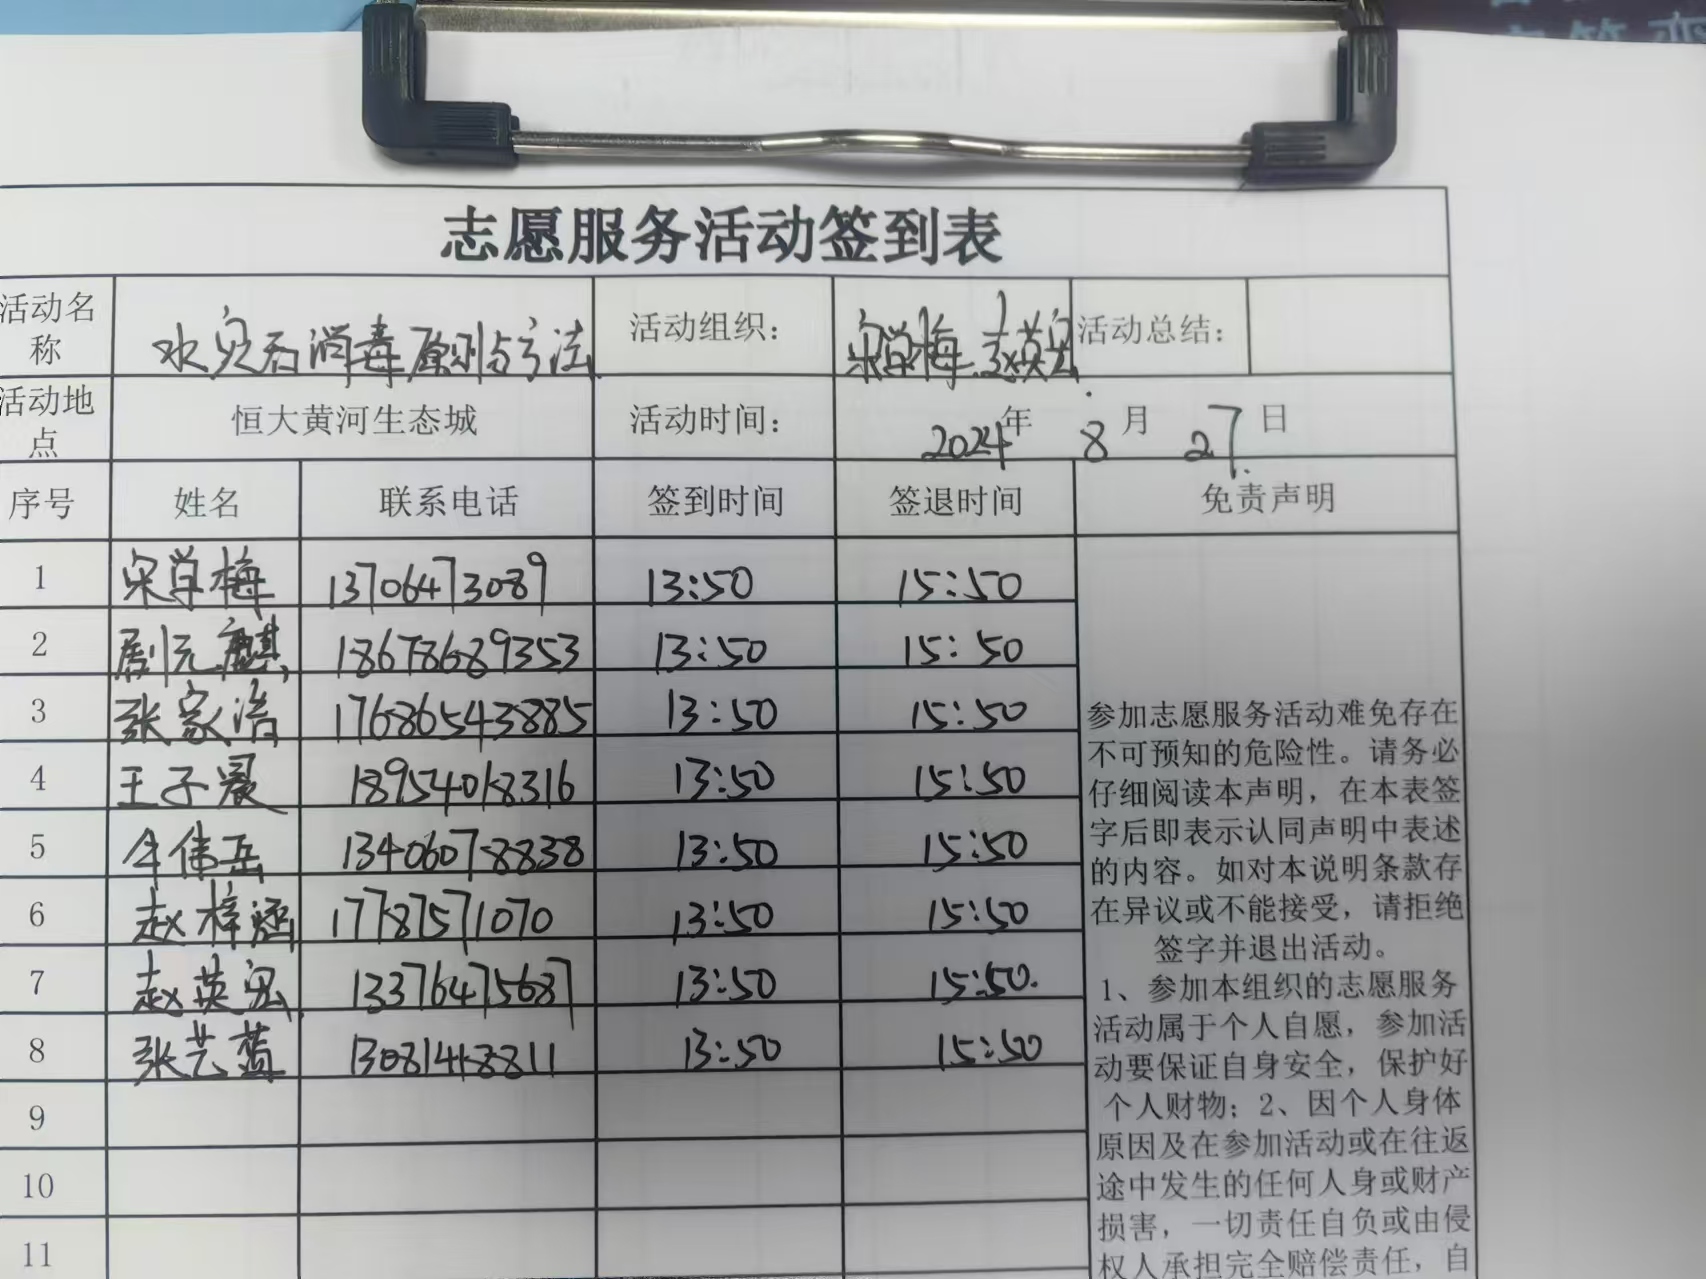 志愿服务活动签到表
活动名称 水灾后消毒原则与方法 活动组织： 宋学梅、赵英宏 活动总结：
活动地点 恒大黄河生态城 活动时间： 2024年 8月 27日
序号 姓名 联系电话 签到时间 签退时间 免责声明
1 宋学梅 13706473089 13:50 15:50
2 剧元麒 18678689353 13:50 15:50
3 张家浩 17686543885 13:50 15:50
4 王子宸 18954018316 13:50 15:50
5 伟岳 13406078838 13:50 15:50
6 赵梓涵 17787571070 13:50 15:50
7 赵英宏 13376475687 13:50 15:50.
8 张艺蓝 13081418811 13:50 15:50
9
10
11
参加志愿服务活动难免存在
不可预知的危险性。请务必
仔细阅读本声明，在本表签
字后即表示认同声明中表述
的内容。如对本说明条款存
在异议或不能接受，请拒绝
签字并退出活动。
1、参加本组织的志愿服务
活动属于个人自愿，参加活
动要保证自身安全，保护好
个人财物；2、因个人身体
原因及在参加活动或在往返
途中发生的任何人身或财产
损害，一切责任自负或由侵
权人承担完全赔偿责任，自